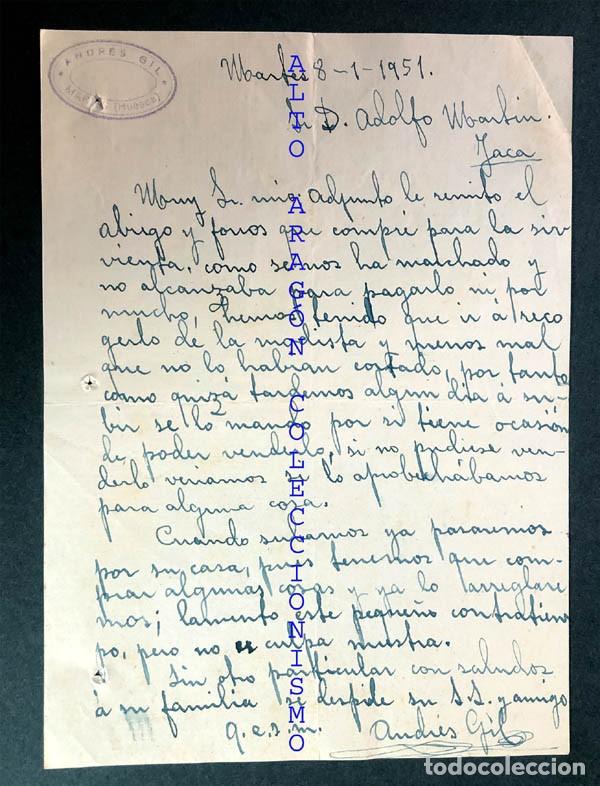 * ANDRES GIL *
(Huesca)
Martes 8-1-1951.
Sr. D. Adolfo Martin.
Jaca
Muy Sr. mio: adjunto le remito el
abrigo y foros que compré para la sir
vienta, como se nos ha marchado y
no alcanzaba para pagarlo ni por
mucho, hemos tenido que ir á reco
gerlo de la modista y menos mal
que no lo habian cortado, por tanto
como quizá tardemos algun dia á su-
bir se lo mando por si tiene ocasión
de poder venderlo, si no pudiese ven-
derlo veriamos si lo aprobechábamos
para alguna cosa.
Cuando subamos ya pararemos
por su casa, pues tenemos que com-
prar algunas cosas y ya lo arreglare
mos; lamento este pequeño contratiem
po, pero no es culpa nuestra.
Sin otro particular con saludos
á su familia se despide su S.S. y amigo
q.e.s.m. Andrés Gil
ALTO ARAGÓN COLECCIONISMO
todocoleccion